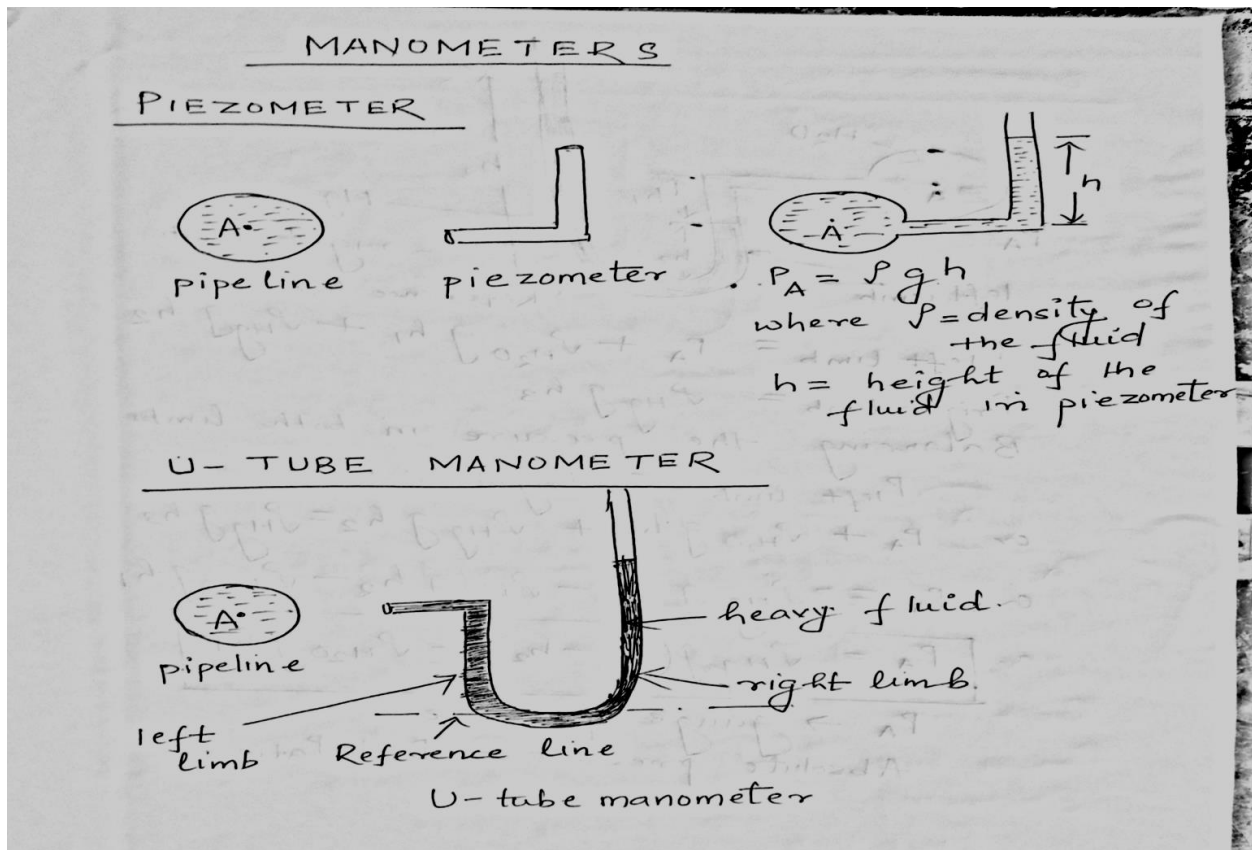 MANOMETERS
PIEZOMETER
A
pipe line
piezometer
A
h
P_A = ρgh
where ρ = density of
the fluid
h = height of the
fluid in piezometer
U- TUBE MANOMETER
A
pipeline
heavy fluid.
right limb.
left
limb
Reference line
U-tube manometer